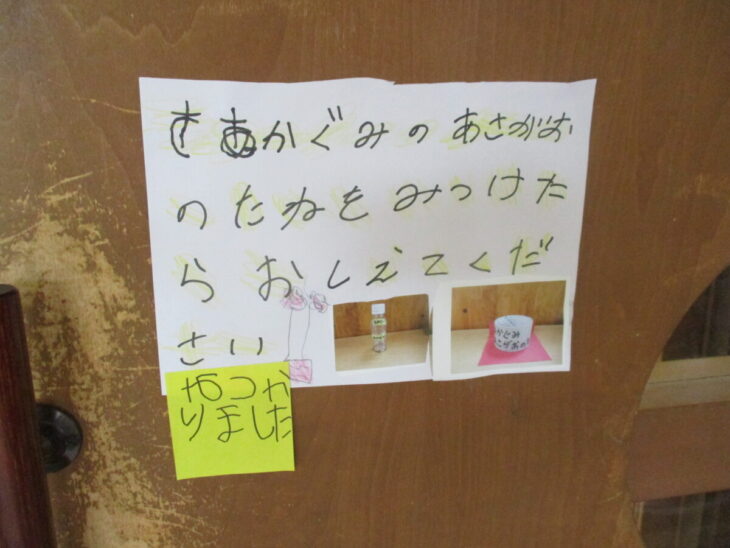 あかぐみの あさがお
のたねをみつけた
らおしえてくだ
さい
かぐみ
やつか
りました